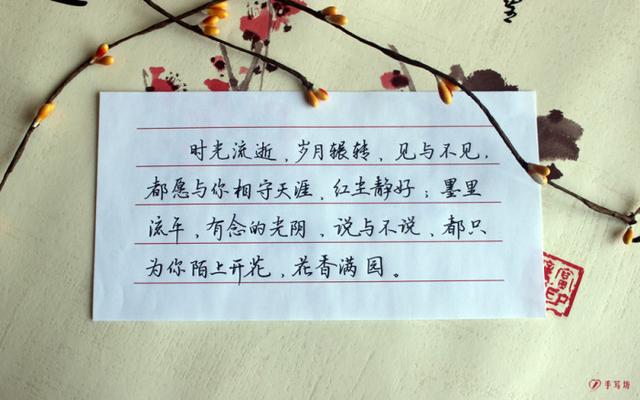 时光流逝，岁月辗转，见与不见，
都愿与你相守天涯，红尘静好；墨里
流年，有念的光阴，说与不说，都只
为你陌上开花，花香满园。
手写坊